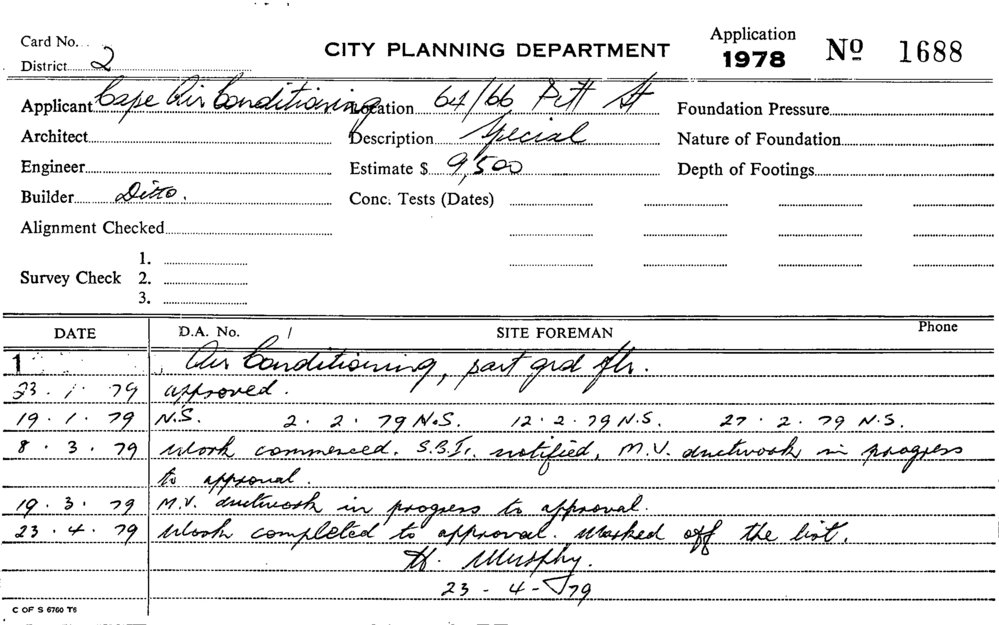 Card No.
District 2
CITY PLANNING DEPARTMENT
Application
1978 No 1688
Applicant Cape Air Conditioning Location 64/66 Pitt St Foundation Pressure
Architect Description Special Nature of Foundation
Engineer Estimate $ 9,500 Depth of Footings
Builder Ditto. Conc. Tests (Dates)
Alignment Checked
Survey Check 1.
2.
3.
DATE D.A. No. / SITE FOREMAN Phone
1 Air Conditioning, part grd flr.
23.1.79 approved.
19.1.79 N.S. 2.2.79 N.S. 12.2.79 N.S. 27.2.79 N.S.
8.3.79 Work commenced. S.B.I. notified. M.V. ductwork in progress
to approval.
19.3.79 M.V. ductwork in progress to approval.
23.4.79 Work completed to approval. Marked off the list.
H. Murphy.
23-4-79
C OF S 6760 T6